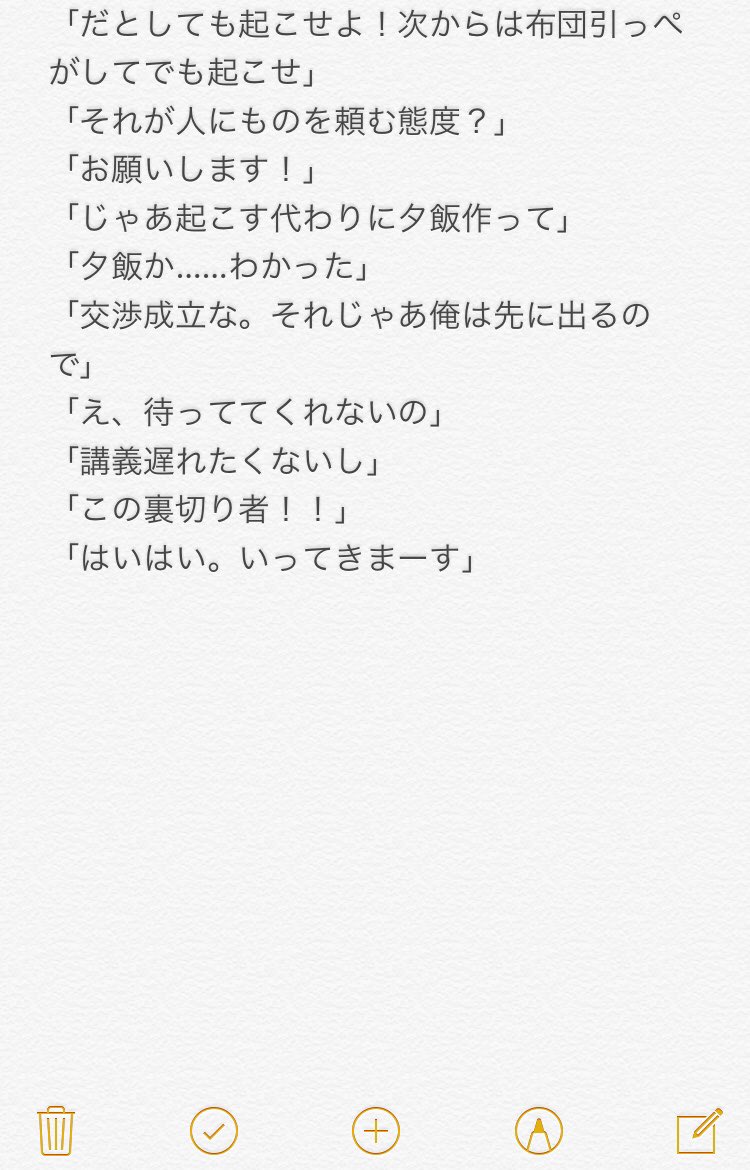 「だとしても起こせよ！次からは布団引っぺ
がしてでも起こせ」
「それが人にものを頼む態度？」
「お願いします！」
「じゃあ起こす代わりに夕飯作って」
「夕飯か……わかった」
「交渉成立な。それじゃあ俺は先に出るの
で」
「え、待っててくれないの」
「講義遅れたくないし」
「この裏切り者！！」
「はいはい。いってきまーす」